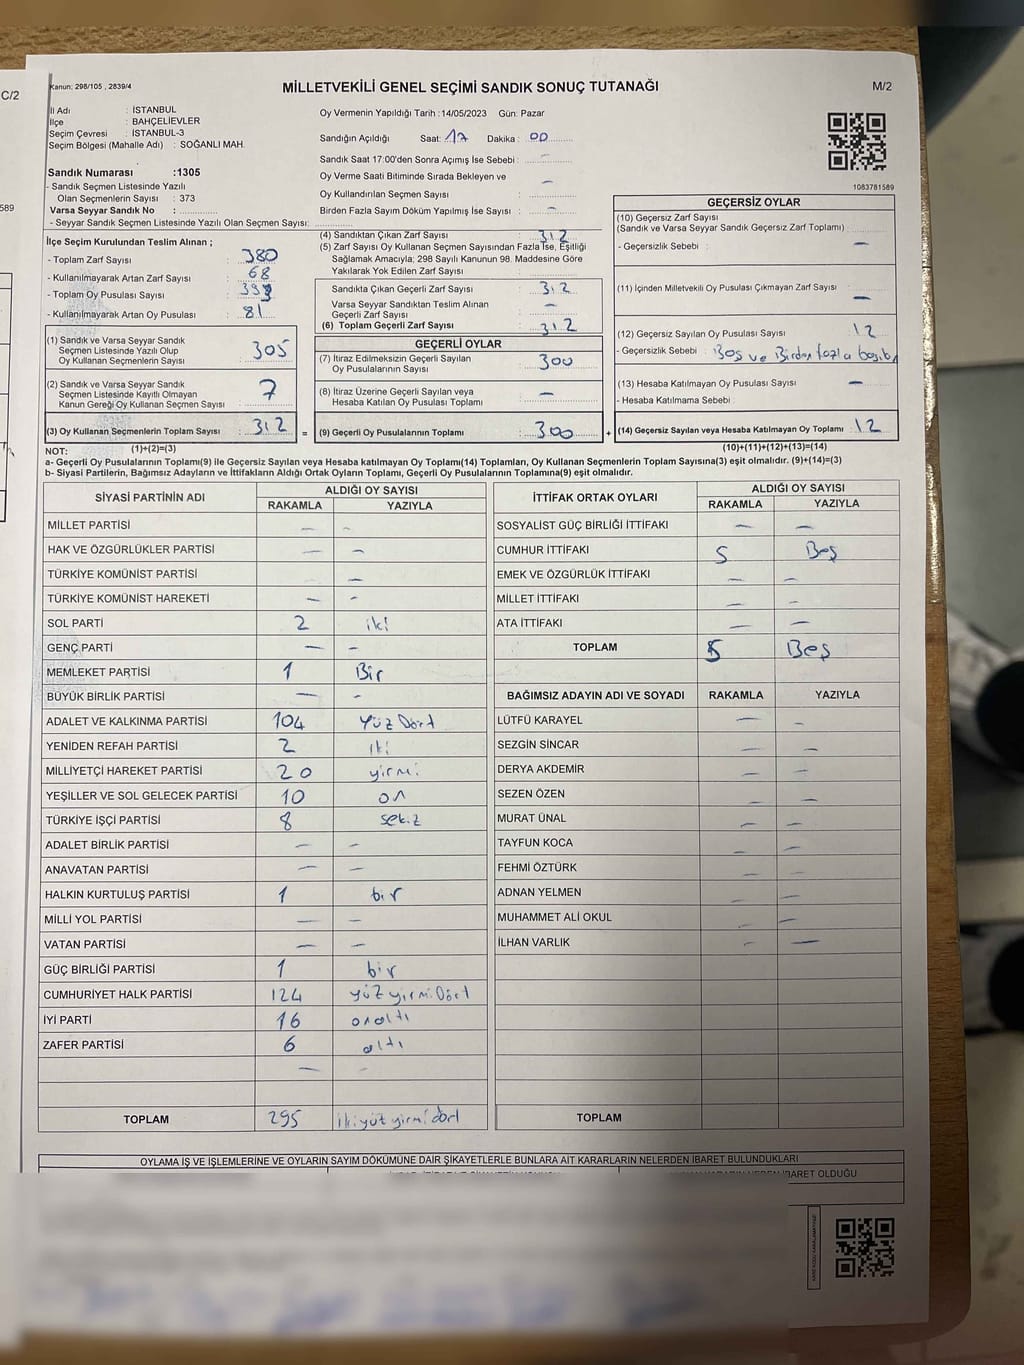 C/2
589
Kanun; 298/105 , 2839/4
MİLLETVEKİLİ GENEL SEÇİMİ SANDIK SONUÇ TUTANAĞI
M/2
İl Adı : İSTANBUL
İlçe : BAHÇELİEVLER
Seçim Çevresi : İSTANBUL-3
Seçim Bölgesi (Mahalle Adı) : SOĞANLI MAH.
Sandık Numarası :1305
- Sandık Seçmen Listesinde Yazılı
Olan Seçmenlerin Sayısı : 373
Varsa Seyyar Sandık No :
- Seyyar Sandık Seçmen Listesinde Yazılı Olan Seçmen Sayısı:
Oy Vermenin Yapıldığı Tarih :14/05/2023 Gün: Pazar
Sandığın Açıldığı Saat: 17 Dakika : 00
Sandık Saat 17:00'den Sonra Açımış İse Sebebi : –
Oy Verme Saati Bitiminde Sırada Bekleyen ve
Oy Kullandırılan Seçmen Sayısı : –
Birden Fazla Sayım Döküm Yapılmış İse Sayısı : –
1083781589
İlçe Seçim Kurulundan Teslim Alınan ;
- Toplam Zarf Sayısı : 380
- Kullanılmayarak Artan Zarf Sayısı : 68
- Toplam Oy Pusulası Sayısı :
- Kullanılmayarak Artan Oy Pusulası : 81
(1) Sandık ve Varsa Seyyar Sandık
Seçmen Listesinde Yazılı Olup
Oy Kullanan Seçmenlerin Sayısı 305
(2) Sandık ve Varsa Seyyar Sandık
Seçmen Listesinde Kayıtlı Olmayan
Kanun Gereği Oy Kullanan Seçmen Sayısı 7
(3) Oy Kullanan Seçmenlerin Toplam Sayısı : 312
(1)+(2)=(3)
(4) Sandıktan Çıkan Zarf Sayısı : 312
(5) Zarf Sayısı Oy Kullanan Seçmen Sayısından Fazla İse, Eşitliği
Sağlamak Amacıyla; 298 Sayılı Kanunun 98. Maddesine Göre
Yakılarak Yok Edilen Zarf Sayısı :
Sandıkta Çıkan Geçerli Zarf Sayısı : 312
Varsa Seyyar Sandıktan Teslim Alınan
Geçerli Zarf Sayısı : –
(6) Toplam Geçerli Zarf Sayısı : 312
GEÇERLİ OYLAR
(7) İtiraz Edilmeksizin Geçerli Sayılan
Oy Pusulalarının Sayısı : 300
(8) İtiraz Üzerine Geçerli Sayılan veya
Hesaba Katılan Oy Pusulası Toplamı : –
= (9) Geçerli Oy Pusulalarının Toplamı : 300
GEÇERSİZ OYLAR
(10) Geçersiz Zarf Sayısı
(Sandık ve Varsa Seyyar Sandık Geçersiz Zarf Toplamı) :
- Geçersizlik Sebebi : –
(11) İçinden Milletvekili Oy Pusulası Çıkmayan Zarf Sayısı : –
(12) Geçersiz Sayılan Oy Pusulası Sayısı : 12
- Geçersizlik Sebebi : Boş ve Birden fazla
(13) Hesaba Katılmayan Oy Pusulası Sayısı : –
- Hesaba Katılmama Sebebi :
+ (14) Geçersiz Sayılan veya Hesaba Katılmayan Oy Toplamı : 12
(10)+(11)+(12)+(13)=(14)
NOT:
a- Geçerli Oy Pusulalarının Toplamı(9) ile Geçersiz Sayılan veya Hesaba Katılmayan Oy Toplamı(14) Toplamları, Oy Kullanan Seçmenlerin Toplam Sayısına(3) eşit olmalıdır. (9)+(14)=(3)
b- Siyasi Partilerin, Bağımsız Adayların ve İttifakların Aldığı Ortak Oyların Toplamı, Geçerli Oy Pusulalarının Toplamına(9) eşit olmalıdır.
SİYASİ PARTİNİN ADI ALDIĞI OY SAYISI
RAKAMLA YAZIYLA
MİLLET PARTİSİ – –
HAK VE ÖZGÜRLÜKLER PARTİSİ – –
TÜRKİYE KOMÜNİST PARTİSİ –
TÜRKİYE KOMÜNİST HAREKETİ – –
SOL PARTİ 2 iki
GENÇ PARTİ – –
MEMLEKET PARTİSİ 1 Bir
BÜYÜK BİRLİK PARTİSİ – –
ADALET VE KALKINMA PARTİSİ 104 Yüz Dört
YENİDEN REFAH PARTİSİ 2 iki
MİLLİYETÇİ HAREKET PARTİSİ 20 yirmi
YEŞİLLER VE SOL GELECEK PARTİSİ 10 on
TÜRKİYE İŞÇİ PARTİSİ 8 sekiz
ADALET BİRLİK PARTİSİ – –
ANAVATAN PARTİSİ – –
HALKIN KURTULUŞ PARTİSİ 1 bir
MİLLİ YOL PARTİSİ – –
VATAN PARTİSİ – –
GÜÇ BİRLİĞİ PARTİSİ 1 bir
CUMHURİYET HALK PARTİSİ 124 yüz yirmi Dört
İYİ PARTİ 16 onaltı
ZAFER PARTİSİ 6 altı
– –
TOPLAM 295 ikiyüz yirmi dört
İTTİFAK ORTAK OYLARI ALDIĞI OY SAYISI
RAKAMLA YAZIYLA
SOSYALİST GÜÇ BİRLİĞİ İTTİFAKI – –
CUMHUR İTTİFAKI 5 Beş
EMEK VE ÖZGÜRLÜK İTTİFAKI – –
MİLLET İTTİFAKI – –
ATA İTTİFAKI – –
TOPLAM 5 Beş
BAĞIMSIZ ADAYIN ADI VE SOYADI RAKAMLA YAZIYLA
LÜTFÜ KARAYEL – –
SEZGİN SİNCAR – –
DERYA AKDEMİR – –
SEZEN ÖZEN – –
MURAT ÜNAL – –
TAYFUN KOCA – –
FEHMİ ÖZTÜRK – –
ADNAN YELMEN – –
MUHAMMET ALİ OKUL – –
İLHAN VARLIK – –
TOPLAM
OYLAMA İŞ VE İŞLEMLERİNE VE OYLARIN SAYIM DÖKÜMÜNE DAİR ŞİKAYETLERLE BUNLARA AİT KARARLARIN NELERDEN İBARET BULUNDUKLARI
İBARET OLDUĞU